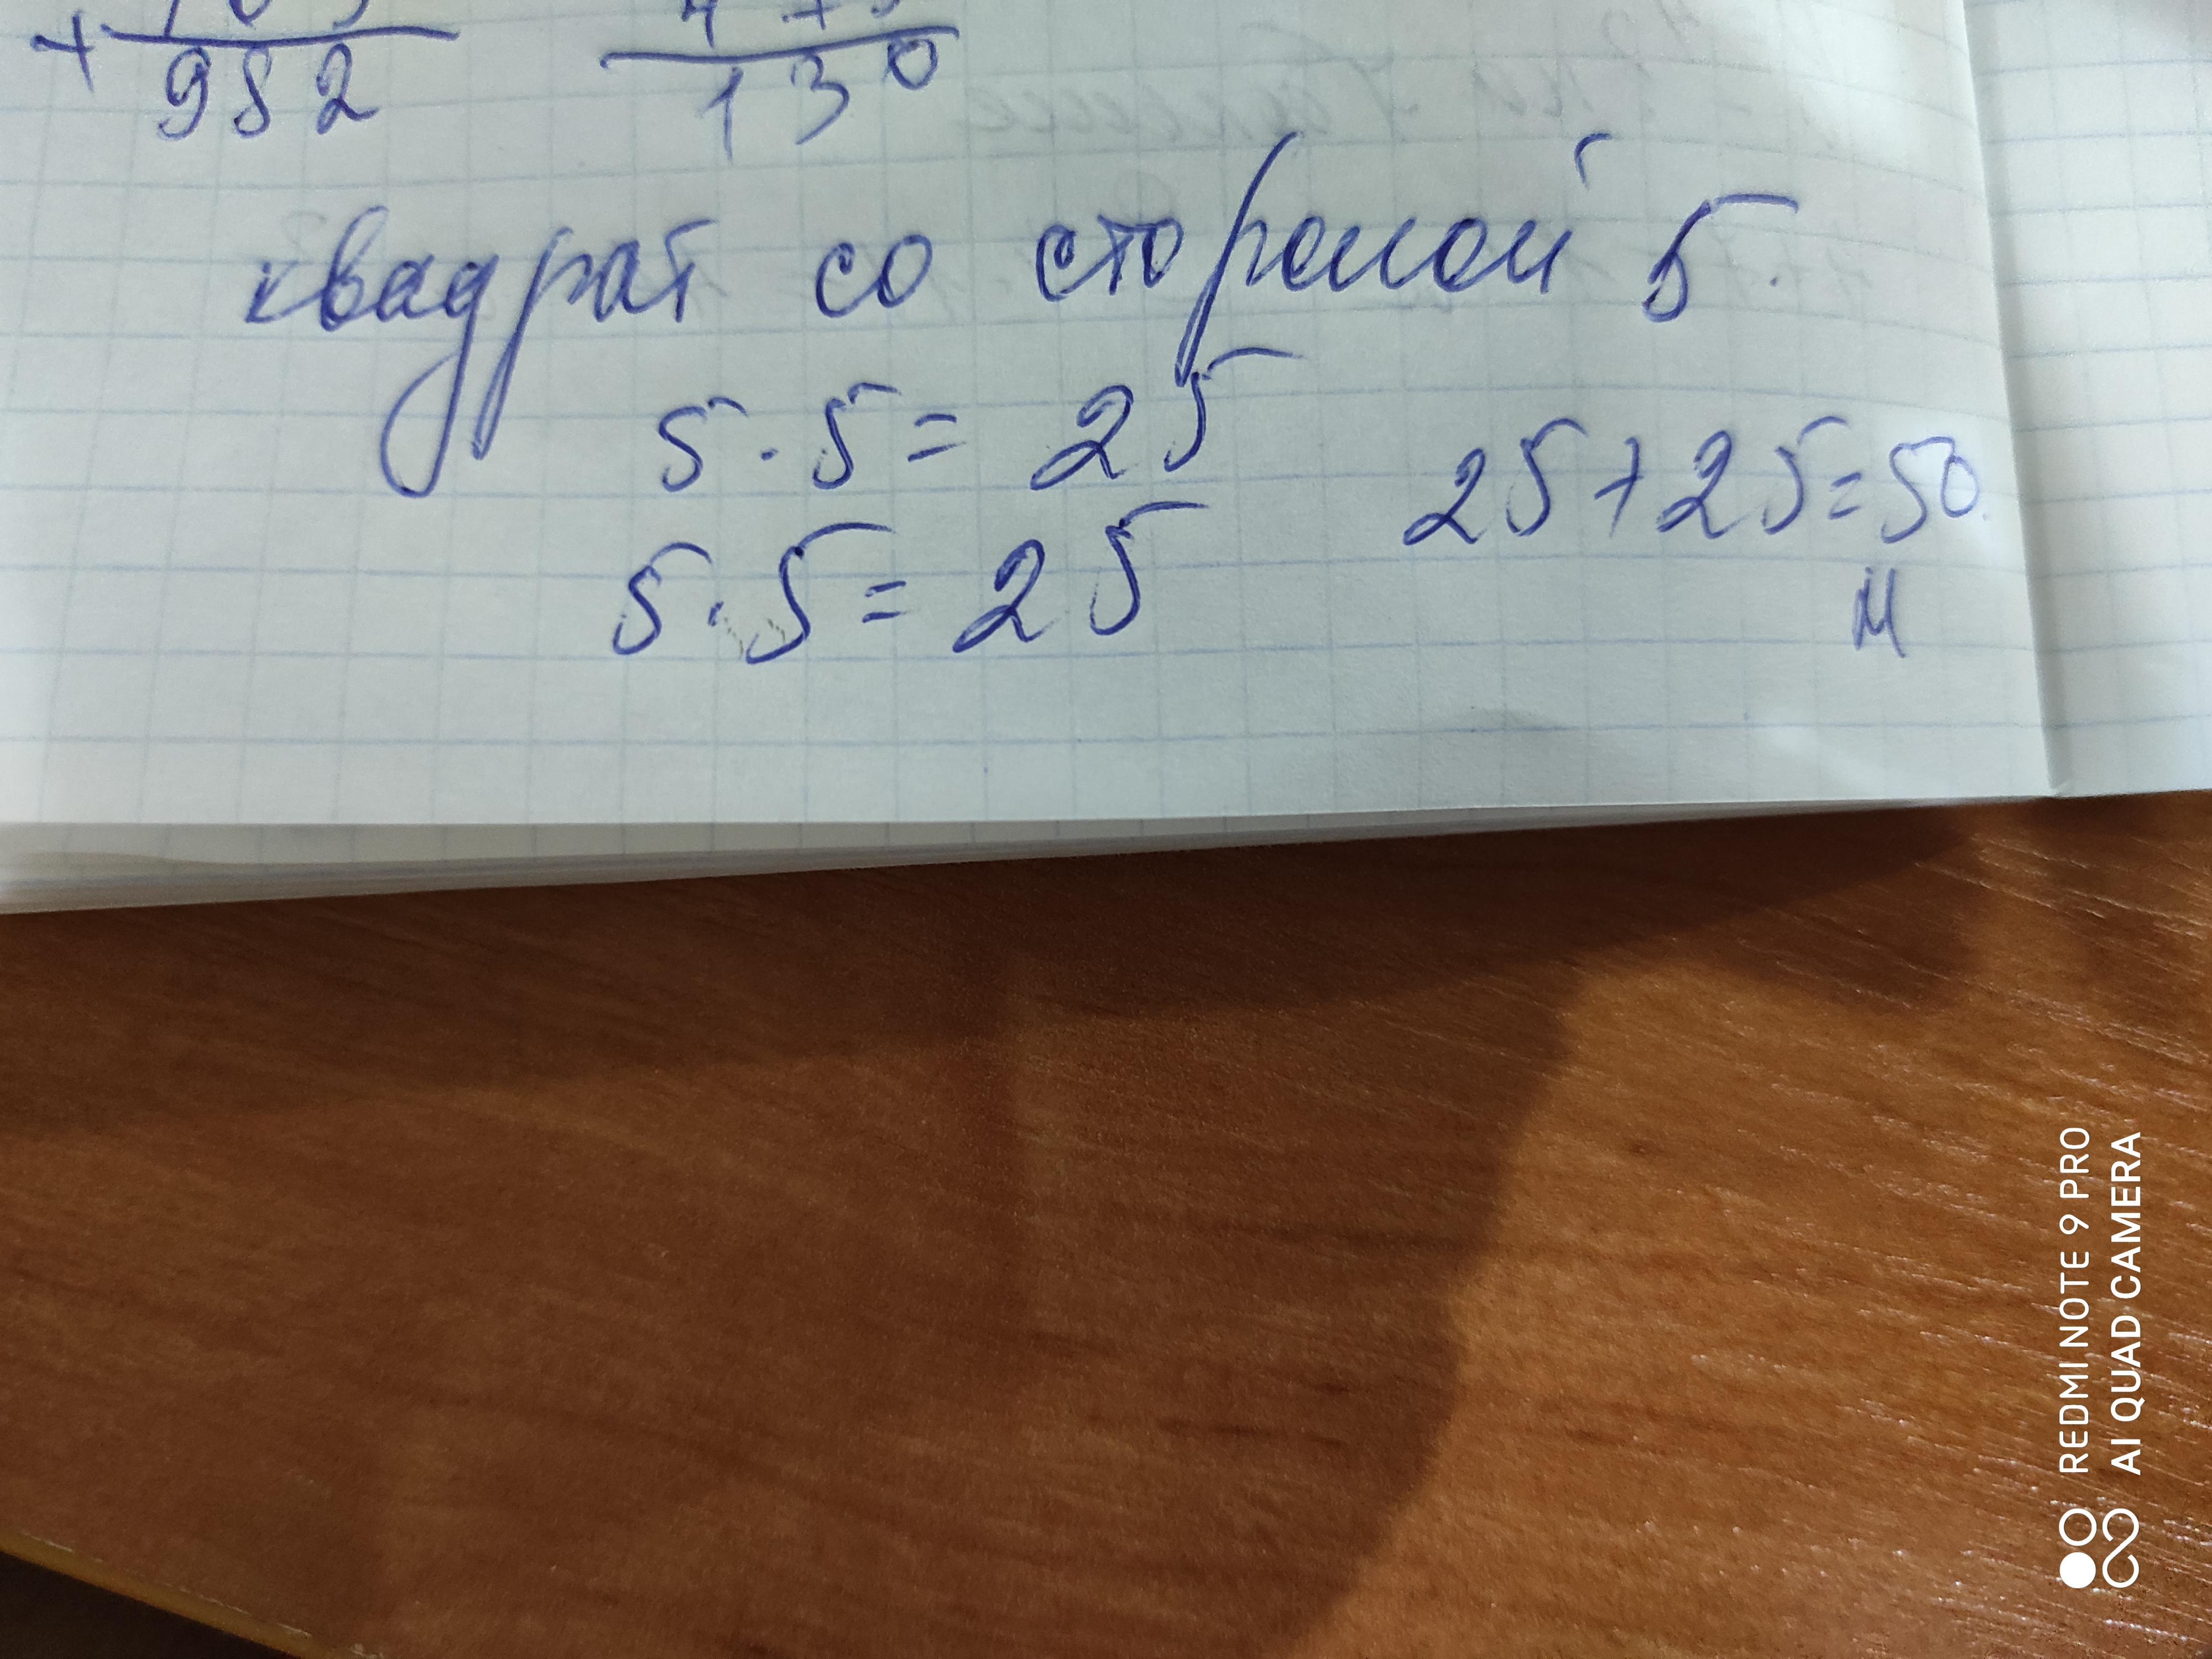 +
982 130
квадрат со стороной 5.
5 · 5 = 25
25 + 25 = 50
5 · 5 = 25
м
REDMI NOTE 9 PRO
AI QUAD CAMERA